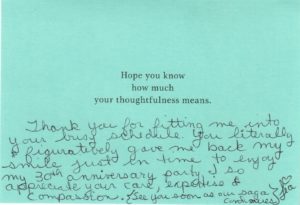 Hope you know
how much
your thoughtfulness means.
Thank you for fitting me into
your busy schedule. You literally
& figuratively gave me back my
smile just in time to enjoy
my 30th anniversary party. I so
appreciate your care, expertise &
compassion. See you soon as our saga
continues!